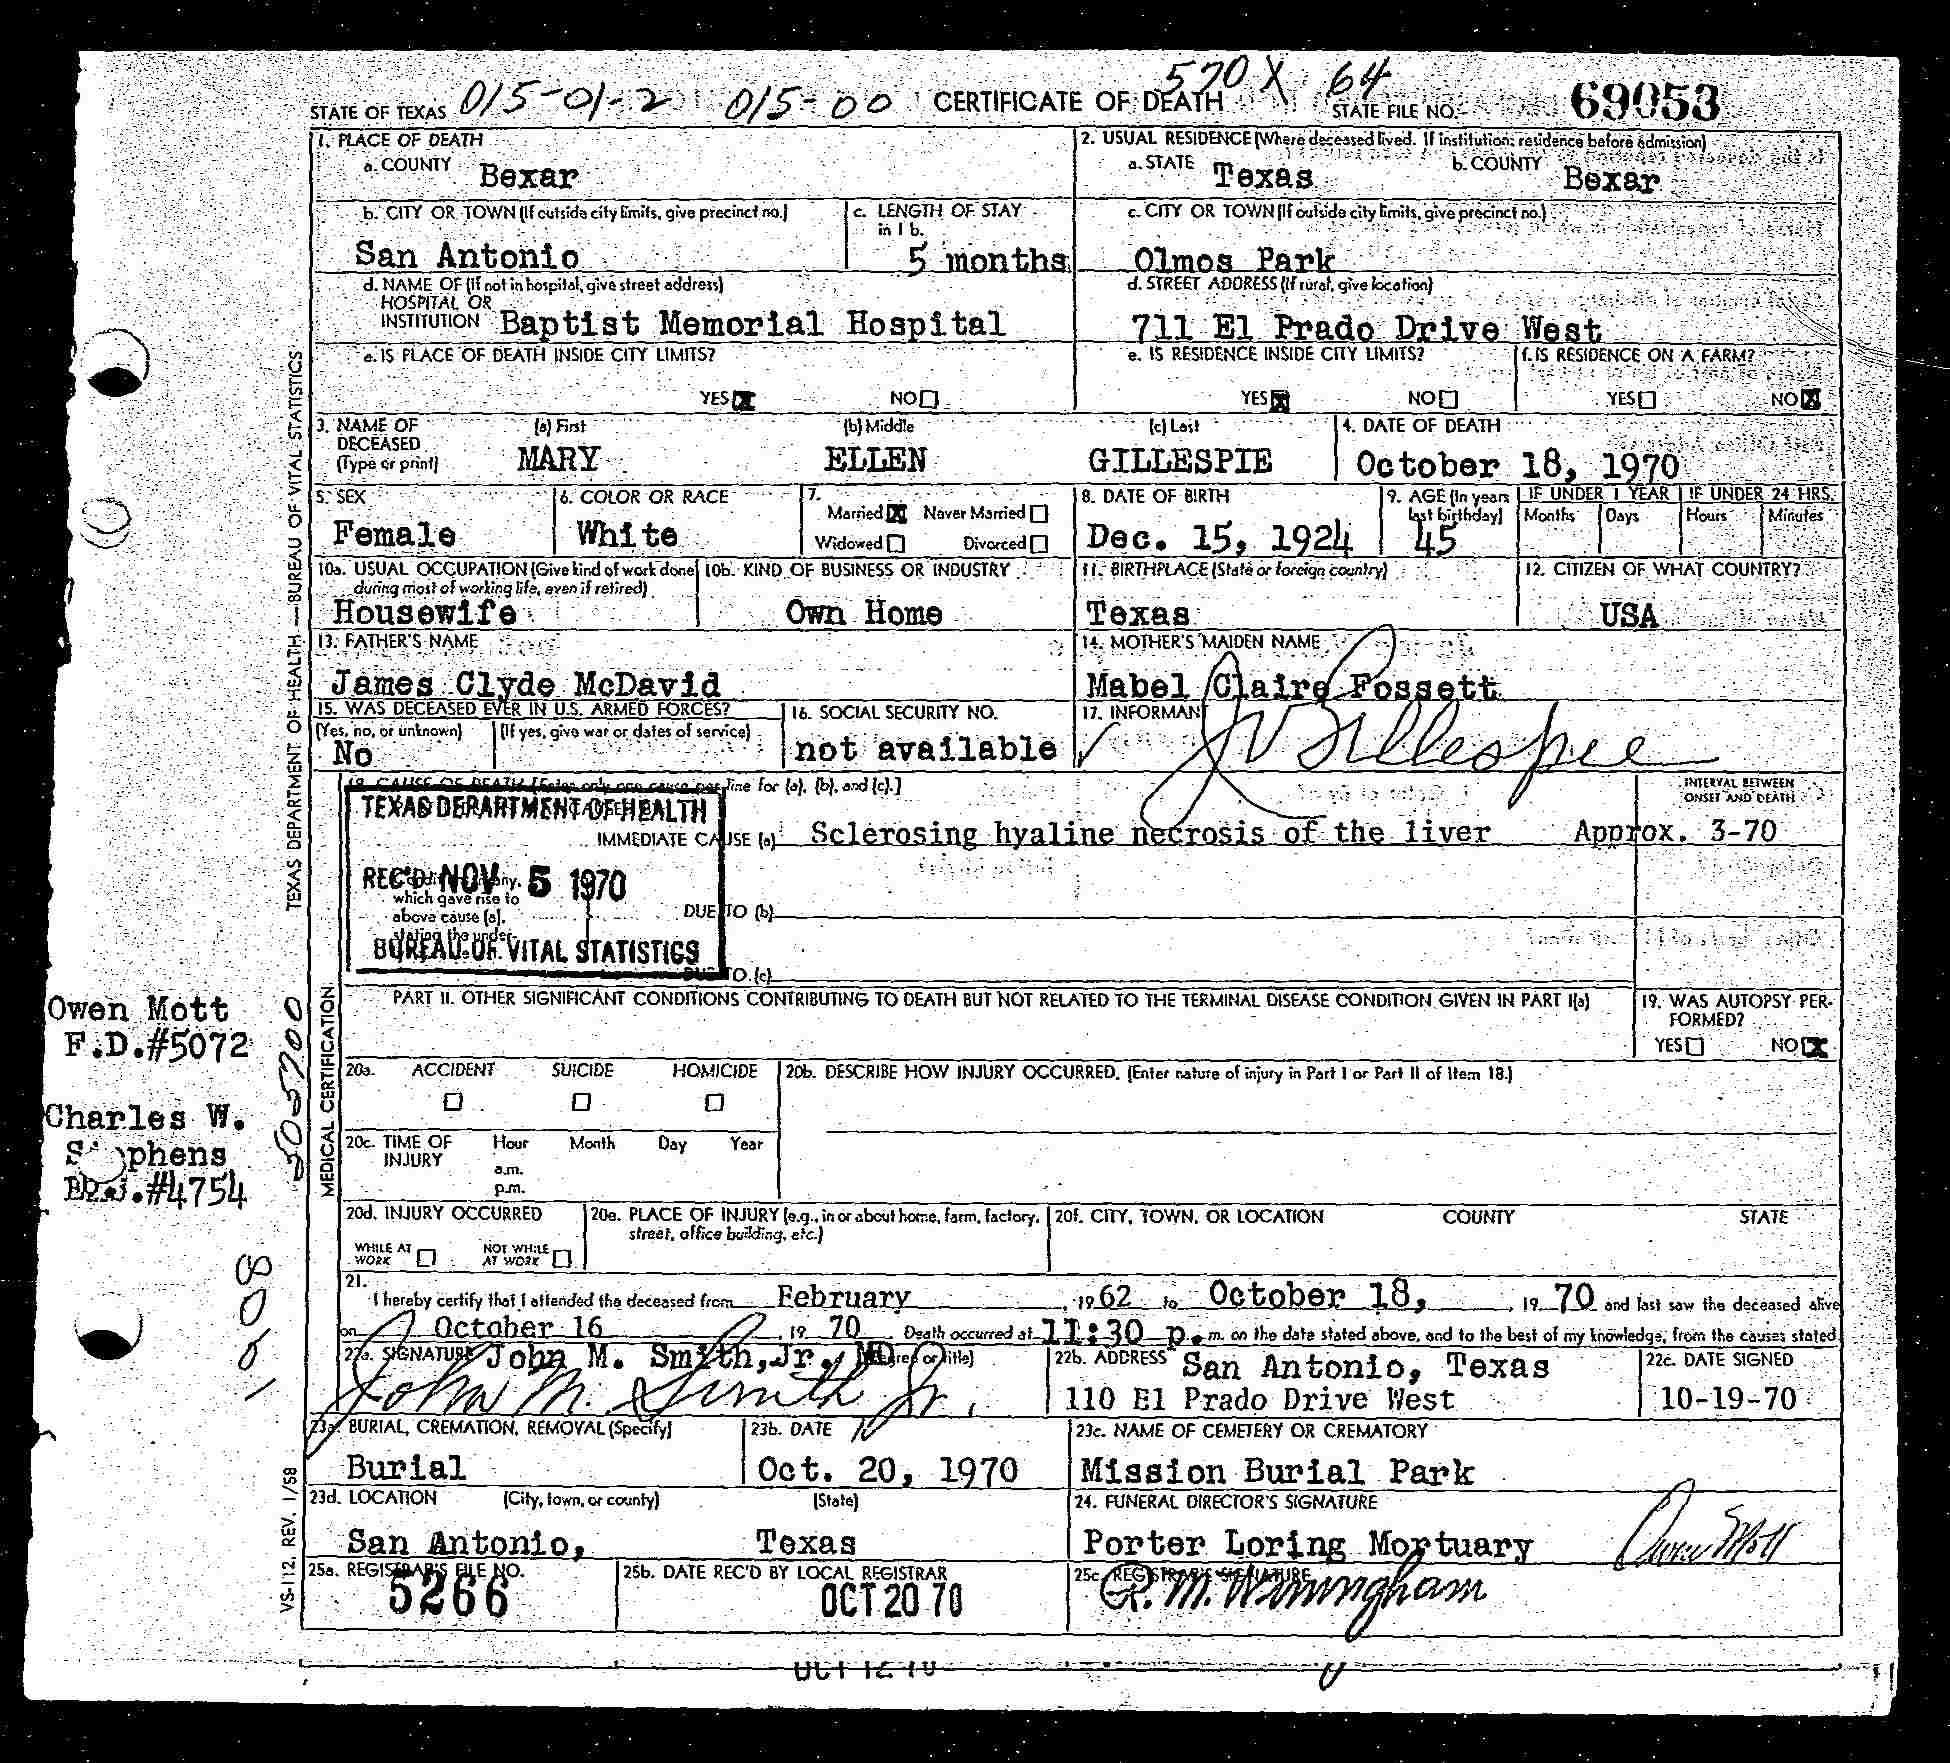 STATE OF TEXAS 015-01-2 015-00 CERTIFICATE OF DEATH 570 X 64 STATE FILE NO. 69053
1. PLACE OF DEATH
a. COUNTY Bexar
2. USUAL RESIDENCE (Where deceased lived. If institution: residence before admission)
a. STATE Texas b. COUNTY Bexar
b. CITY OR TOWN (If outside city limits, give precinct no.) c. LENGTH OF STAY in 1 b.
San Antonio 5 months
c. CITY OR TOWN (If outside city limits, give precinct no.)
Olmos Park
d. NAME OF (If not in hospital, give street address)
HOSPITAL OR
INSTITUTION Baptist Memorial Hospital
d. STREET ADDRESS (If rural, give location)
711 El Prado Drive West
e. IS PLACE OF DEATH INSIDE CITY LIMITS?
YES☒ NO☐
e. IS RESIDENCE INSIDE CITY LIMITS? f. IS RESIDENCE ON A FARM?
YES☒ NO☐ YES☐ NO☒
3. NAME OF DECEASED (Type or print) (a) First (b) Middle (c) Last
MARY ELLEN GILLESPIE
4. DATE OF DEATH
October 18, 1970
5. SEX
Female
6. COLOR OR RACE
White
7.
Married☒ Never Married☐
Widowed☐ Divorced☐
8. DATE OF BIRTH
Dec. 15, 1924
9. AGE (In years last birthday)
45
IF UNDER 1 YEAR IF UNDER 24 HRS.
Months Days Hours Minutes
10a. USUAL OCCUPATION (Give kind of work done during most of working life, even if retired)
Housewife
10b. KIND OF BUSINESS OR INDUSTRY
Own Home
11. BIRTHPLACE (State or foreign country)
Texas
12. CITIZEN OF WHAT COUNTRY?
USA
13. FATHER'S NAME
James Clyde McDavid
14. MOTHER'S MAIDEN NAME
Mabel Claire Fossett
15. WAS DECEASED EVER IN U.S. ARMED FORCES?
(Yes, no, or unknown) (If yes, give war or dates of service)
No
16. SOCIAL SECURITY NO.
not available
17. INFORMANT
✓ Gillespie
18. CAUSE OF DEATH [Enter only one cause per line for (a), (b), and (c).]
INTERVAL BETWEEN
ONSET AND DEATH
TEXAS DEPARTMENT OF HEALTH
IMMEDIATE CAUSE (a) Sclerosing hyaline necrosis of the liver Approx. 3-70
REC'D NOV 5 1970
which gave rise to
above cause (a),
stating the under-
DUE TO (b)
BUREAU OF VITAL STATISTICS
DUE TO (c)
PART II. OTHER SIGNIFICANT CONDITIONS CONTRIBUTING TO DEATH BUT NOT RELATED TO THE TERMINAL DISEASE CONDITION GIVEN IN PART I(a)
19. WAS AUTOPSY PER-
FORMED?
YES☐ NO☒
20a. ACCIDENT SUICIDE HOMICIDE
☐ ☐ ☐
20b. DESCRIBE HOW INJURY OCCURRED. (Enter nature of injury in Part I or Part II of Item 18.)
20c. TIME OF INJURY Hour Month Day Year
a.m.
p.m.
20d. INJURY OCCURRED
WHILE AT WORK ☐ NOT WHILE AT WORK ☐
20e. PLACE OF INJURY (e.g., in or about home, farm, factory, street, office building, etc.)
20f. CITY, TOWN, OR LOCATION COUNTY STATE
21.
I hereby certify that I attended the deceased from February, 1962 to October 18, 1970 and last saw the deceased alive
on October 16, 1970. Death occurred at 11:30 p.m. on the date stated above, and to the best of my knowledge, from the causes stated.
22a. SIGNATURE John M. Smith, Jr., MD (Degree or title)
John M. Smith Jr.
22b. ADDRESS San Antonio, Texas
110 El Prado Drive West
22c. DATE SIGNED
10-19-70
23a. BURIAL, CREMATION, REMOVAL (Specify)
Burial
23b. DATE
Oct. 20, 1970
23c. NAME OF CEMETERY OR CREMATORY
Mission Burial Park
23d. LOCATION (City, town, or county) (State)
San Antonio, Texas
24. FUNERAL DIRECTOR'S SIGNATURE
Porter Loring Mortuary Owen Mott
25a. REGISTRAR'S FILE NO.
5266
25b. DATE REC'D BY LOCAL REGISTRAR
OCT 20 70
25c. REGISTRAR'S SIGNATURE
TEXAS DEPARTMENT OF HEALTH—BUREAU OF VITAL STATISTICS
MEDICAL CERTIFICATION
VS-112. REV. 1/58
Owen Mott
F.D.#5072
Charles W.
#4754
505700